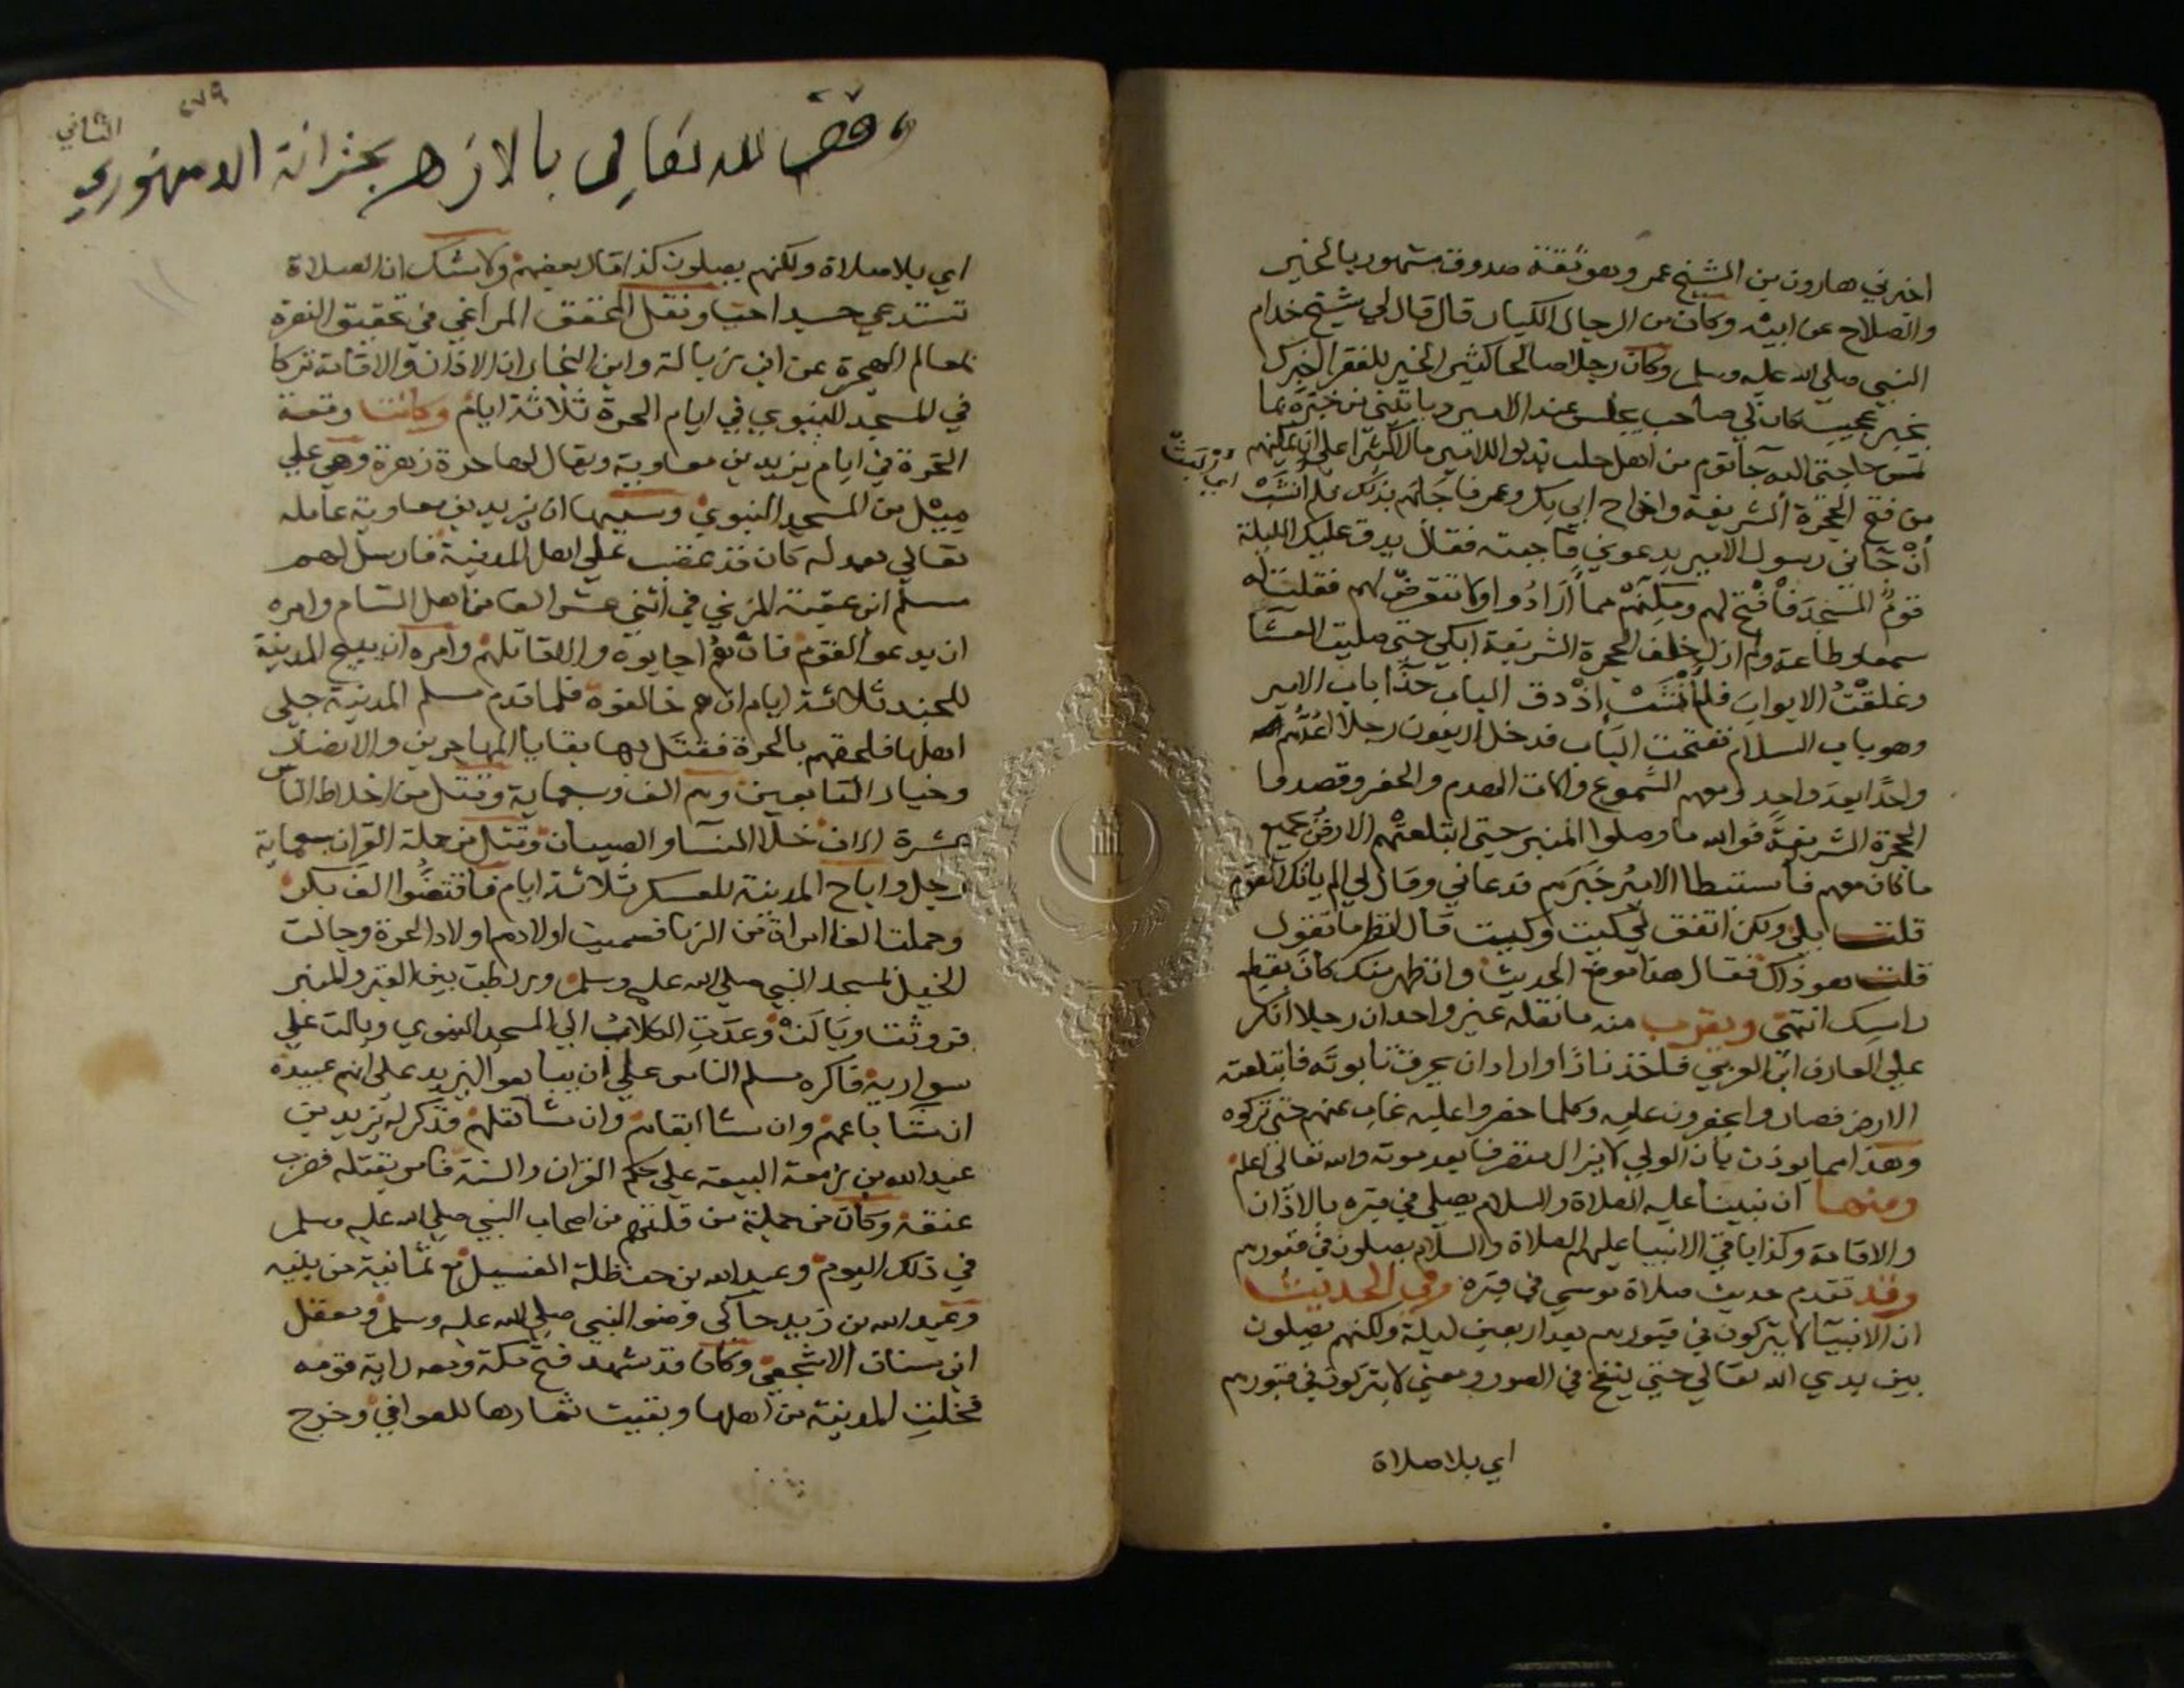 اخبرني هارون بن الشيخ عمر وهو ثقة صدوق مشهور بالخير
والصلاح عن ابيه وكان من الرجال الكبار قال قال لي شيخ خدام
النبي صلى الله عليه وسلم وكان رجلا صالحا كثير الخير للفقرا اخبرك
بخبر عجيب كان لي صاحب يجلس عند الامير وياتيني من خبره بما
تمس حاجتي اليه جا قوم من اهل حلب بذلوا للامير مالا كثيرا على ان يمكنهم
من فتح الحجرة الشريفة واخراج ابي بكر وعمر فاجابهم بذلك فلم انشب
اي البث
أن جاني رسول الامير يدعوني فاجبته فقال يدق عليك الليلة
قوم المسجد فافتح لهم ومكنهم مما أرادوا ولا تتعرض لهم فقلت له
سمعا وطاعة ولم ازل خلف الحجرة الشريفة ابكي حتى صليت العشا
وغلقت الابواب فلم أنشب إذ دق الباب حذا باب الامير
وهو باب السلام ففتحت الباب فدخل اربعون رجلا اعدهم
واحدًا بعد واحد ومعهم الشموع والات الهدم والحفر وقصدوا
الحجرة الشريفة فوالله ما وصلوا المنبر حتى ابتلعتهم الارض بجميع
ما كان معهم فاستبطا الامير خبرهم فدعاني وقال لي الم ياتك القوم
قلت بلى ولكن اتفق لي كيت وكيت قال انظر ما تقول
قلت هو ذاك فقال هذا موضع الحديث وان ظهر منك كان بقطع
راسك انتهى ويقرب منه ما نقله غير واحد ان رجلا انكر
على العارف ابن العربي فاخذ نارًا واراد ان يحرق تابوته فابتلعته
الارض فصاروا يحفرون عليه وكلما حفروا عليه غاب عنهم حتى تركوه
وهذا مما يوذن بان الولي لا يزال متصرفا بعد موته والله تعالى اعلم
ومنها ان نبينا عليه الصلاة والسلام يصلي في قبره بالاذان
والاقامة وكذا باقي الانبيا عليهم الصلاة والسلام يصلون في قبورهم
وقد تقدم حديث صلاة موسى في قبره وفي الحديث
ان الانبيآ لا يتركون في قبورهم بعد اربعين ليلة ولكنهم يصلون
بين يدي الله تعالى حتى ينفخ في الصور ومعنى لا يتركون في قبورهم
اي بلا صلاة
٢٧٩
الثاني
وقف لله تعالى بالازهر بخزانة الدمنهوري
اي بلا صلاة ولكنهم يصلون كذا قال بعضهم ولا شك ان الصلاة
تستدعي جسدا حيا ونقل المحقق المراغي في تحقيق النصرة
بمعالم الهجرة عن ابن زبالة وابن النجار ان الاذان والاقامة تركا
في المسجد النبوي في ايام الحرة ثلاثة ايام وكانت وقعة
الحرة في ايام يزيد بن معاوية ويقال لها حرة زهرة وهي على
ميل من المسجد النبوي وسببها ان يزيد بن معاوية عامله
تعالى بعدله كان قد غضب على اهل المدينة فارسل لهم
مسلم ابن عقبة المزني في اثني عشر الفا من اهل الشام وامره
ان يدعوا القوم فان هم اجابوه والا قاتلهم وامره ان يبيح المدينة
للجند ثلاثة ايام ان هم خالفوه فلما قدم مسلم المدينة جلى
اهلها فلحقهم بالحرة فقتل بها بقايا المهاجرين والانصار
وخيار التابعين وهم الف وسبعماية وقتل من اخلاط الناس
عشرة الاف خلا النسا والصبيان وقتل من حملة القران سبعماية
رجل واباح المدينة للعسكر ثلاثة ايام فافتضوا الف بكر
وحملت الف امراة من الزنا فسميت اولادهم اولاد الحرة وجالت
الخيل بمسجد النبي صلى الله عليه وسلم وربطت بين القبر والمنبر
فروثت وبالت وغدت الكلاب الى المسجد النبوي وبالت على
سواريه فاكره مسلم الناس على ان يبايعوا ليزيد على انهم عبيده
ان شا باعهم وان شا ابقاهم وان شا قتلهم فذكر له يزيد بن
عبد الله بن زمعة البيعة على حكم القران والسنة فامر بقتله فضرب
عنقه وكان من جملة من قتلهم من اصحاب النبي صلى الله عليه وسلم
في ذلك اليوم وعبد الله بن حنظلة الغسيل مع ثمانية من بنيه
وعبد الله بن زيد حاكى وضو النبي صلى الله عليه وسلم ومعقل
ابن سنان الاشجعي وكان قد شهد فتح مكة ومعه راية قومه
فخلت المدينة من اهلها وبقيت ثمارها للعوافي وخرج